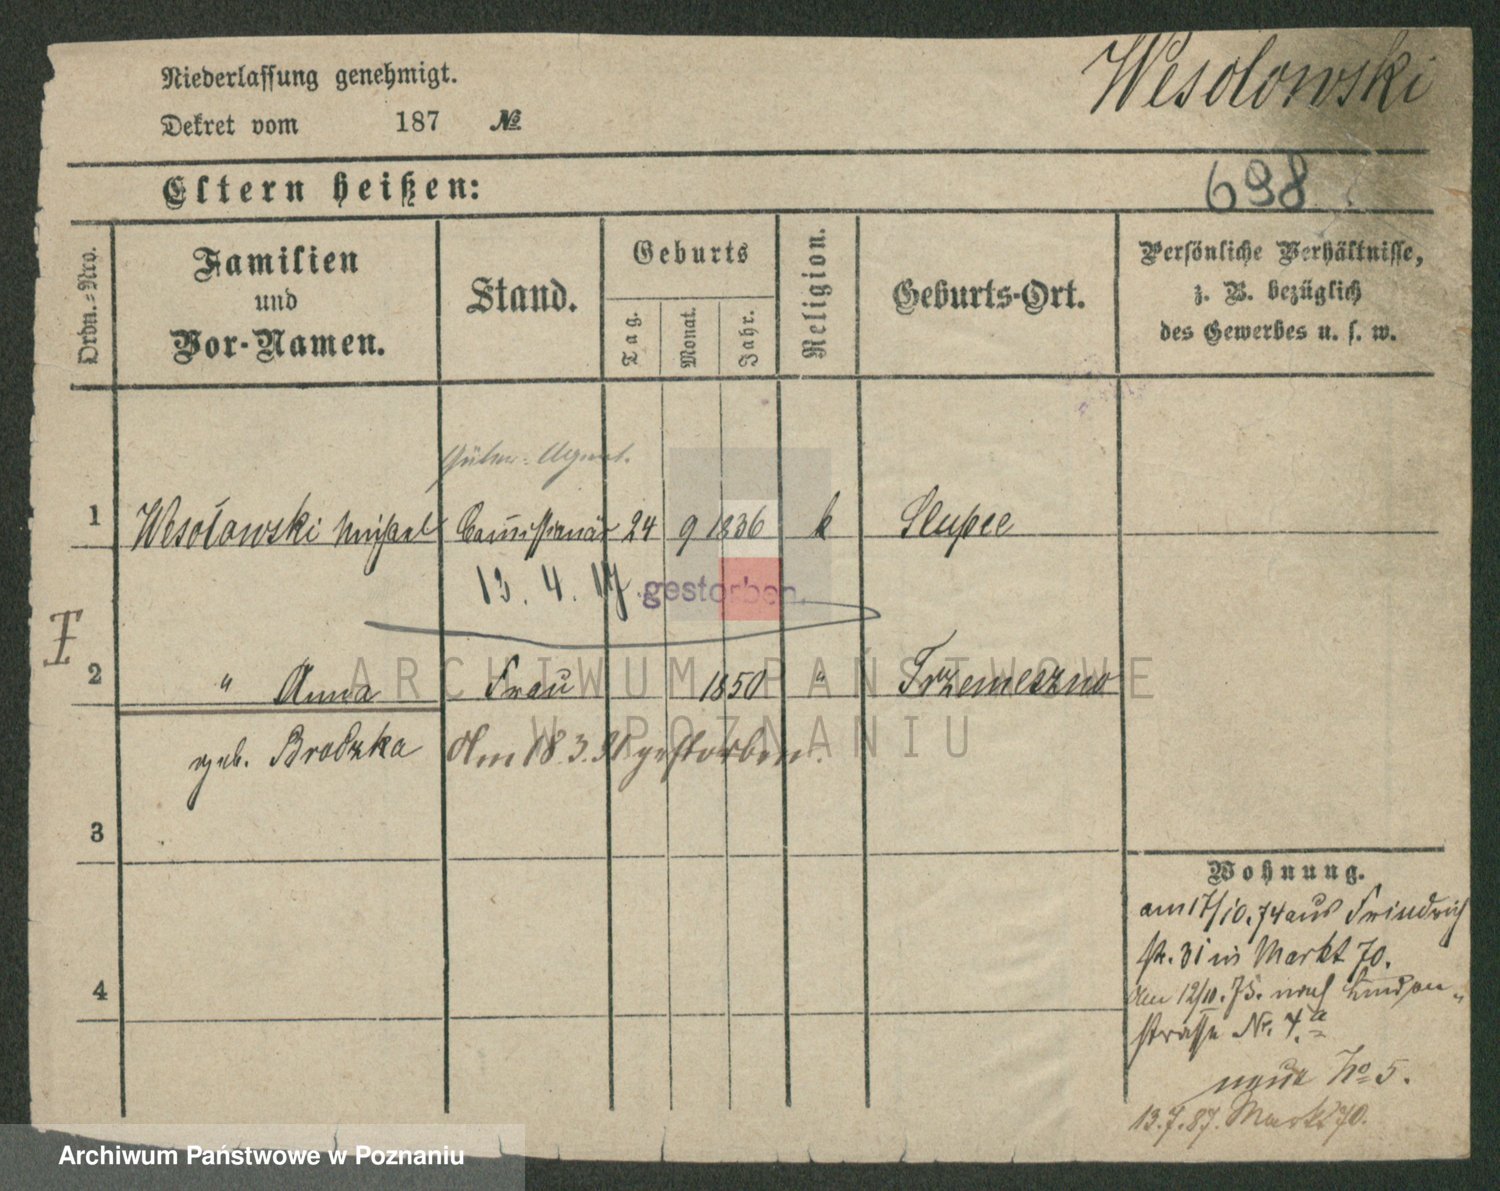 Niederlassung genehmigt.
Wesolowski
Dekret vom 187 №
Eltern heißen:
698
Ordn.=Nro.
Familien
und
Vor-Namen.
Stand.
Geburts
Tag.
Monat.
Jahr.
Religion.
Geburts-Ort.
Persönliche Verhältnisse,
z. B. bezüglich
des Gewerbes u. s. w.
Güter-Agent.
1 Wesołowski Michael Commissionär 24 9 1836 k Slupce
13. 4. 17. gestorben.
I
2 " Anna Frau 1850 " Trzemeszno
geb. Brodzka Am 18.3.91 gestorben.
3
4
Wohnung.
am 17/10.74 aus Friedrich
str. 31 in Markt 70.
Am 12/10.75. nach Linden-
strasse Nr. 4.a
neue No 5.
13.7.87. Markt 70.
ARCHIWUM PAŃSTWOWE
W POZNANIU
Archiwum Państwowe w Poznaniu